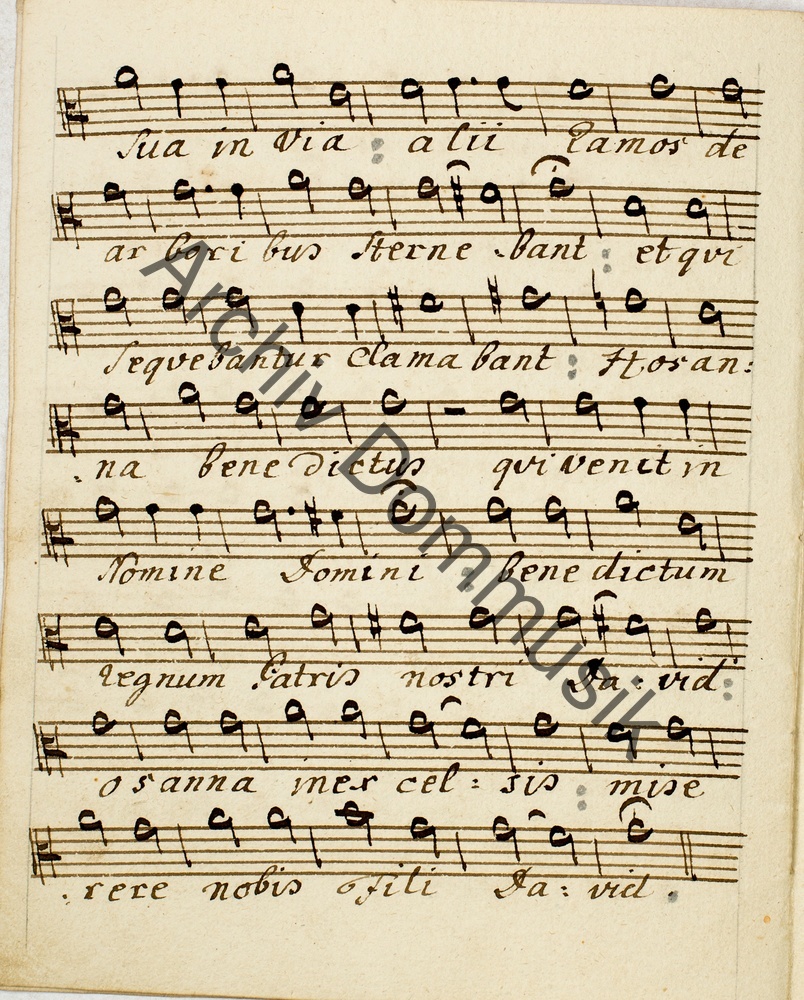 sua in via : a lii Ramos de
ar bori bus sterne - bant : et qui
sequebantur Clama bant : Hosan:
: na bene dictus qui venit in
Nomine Domini : bene dictum
regnum Patris nostri Da : vid :
o sanna inex cel : sis : mise
: rere nobis o fili Da : vid .
Archiv Dommusik